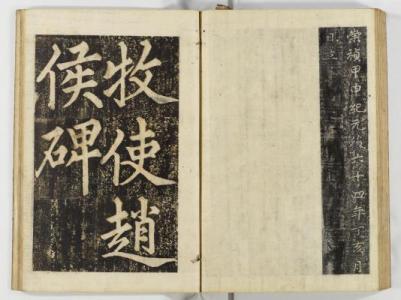 崇禎甲申紀元後六十四年丁亥月
日立
牧使趙
侯碑